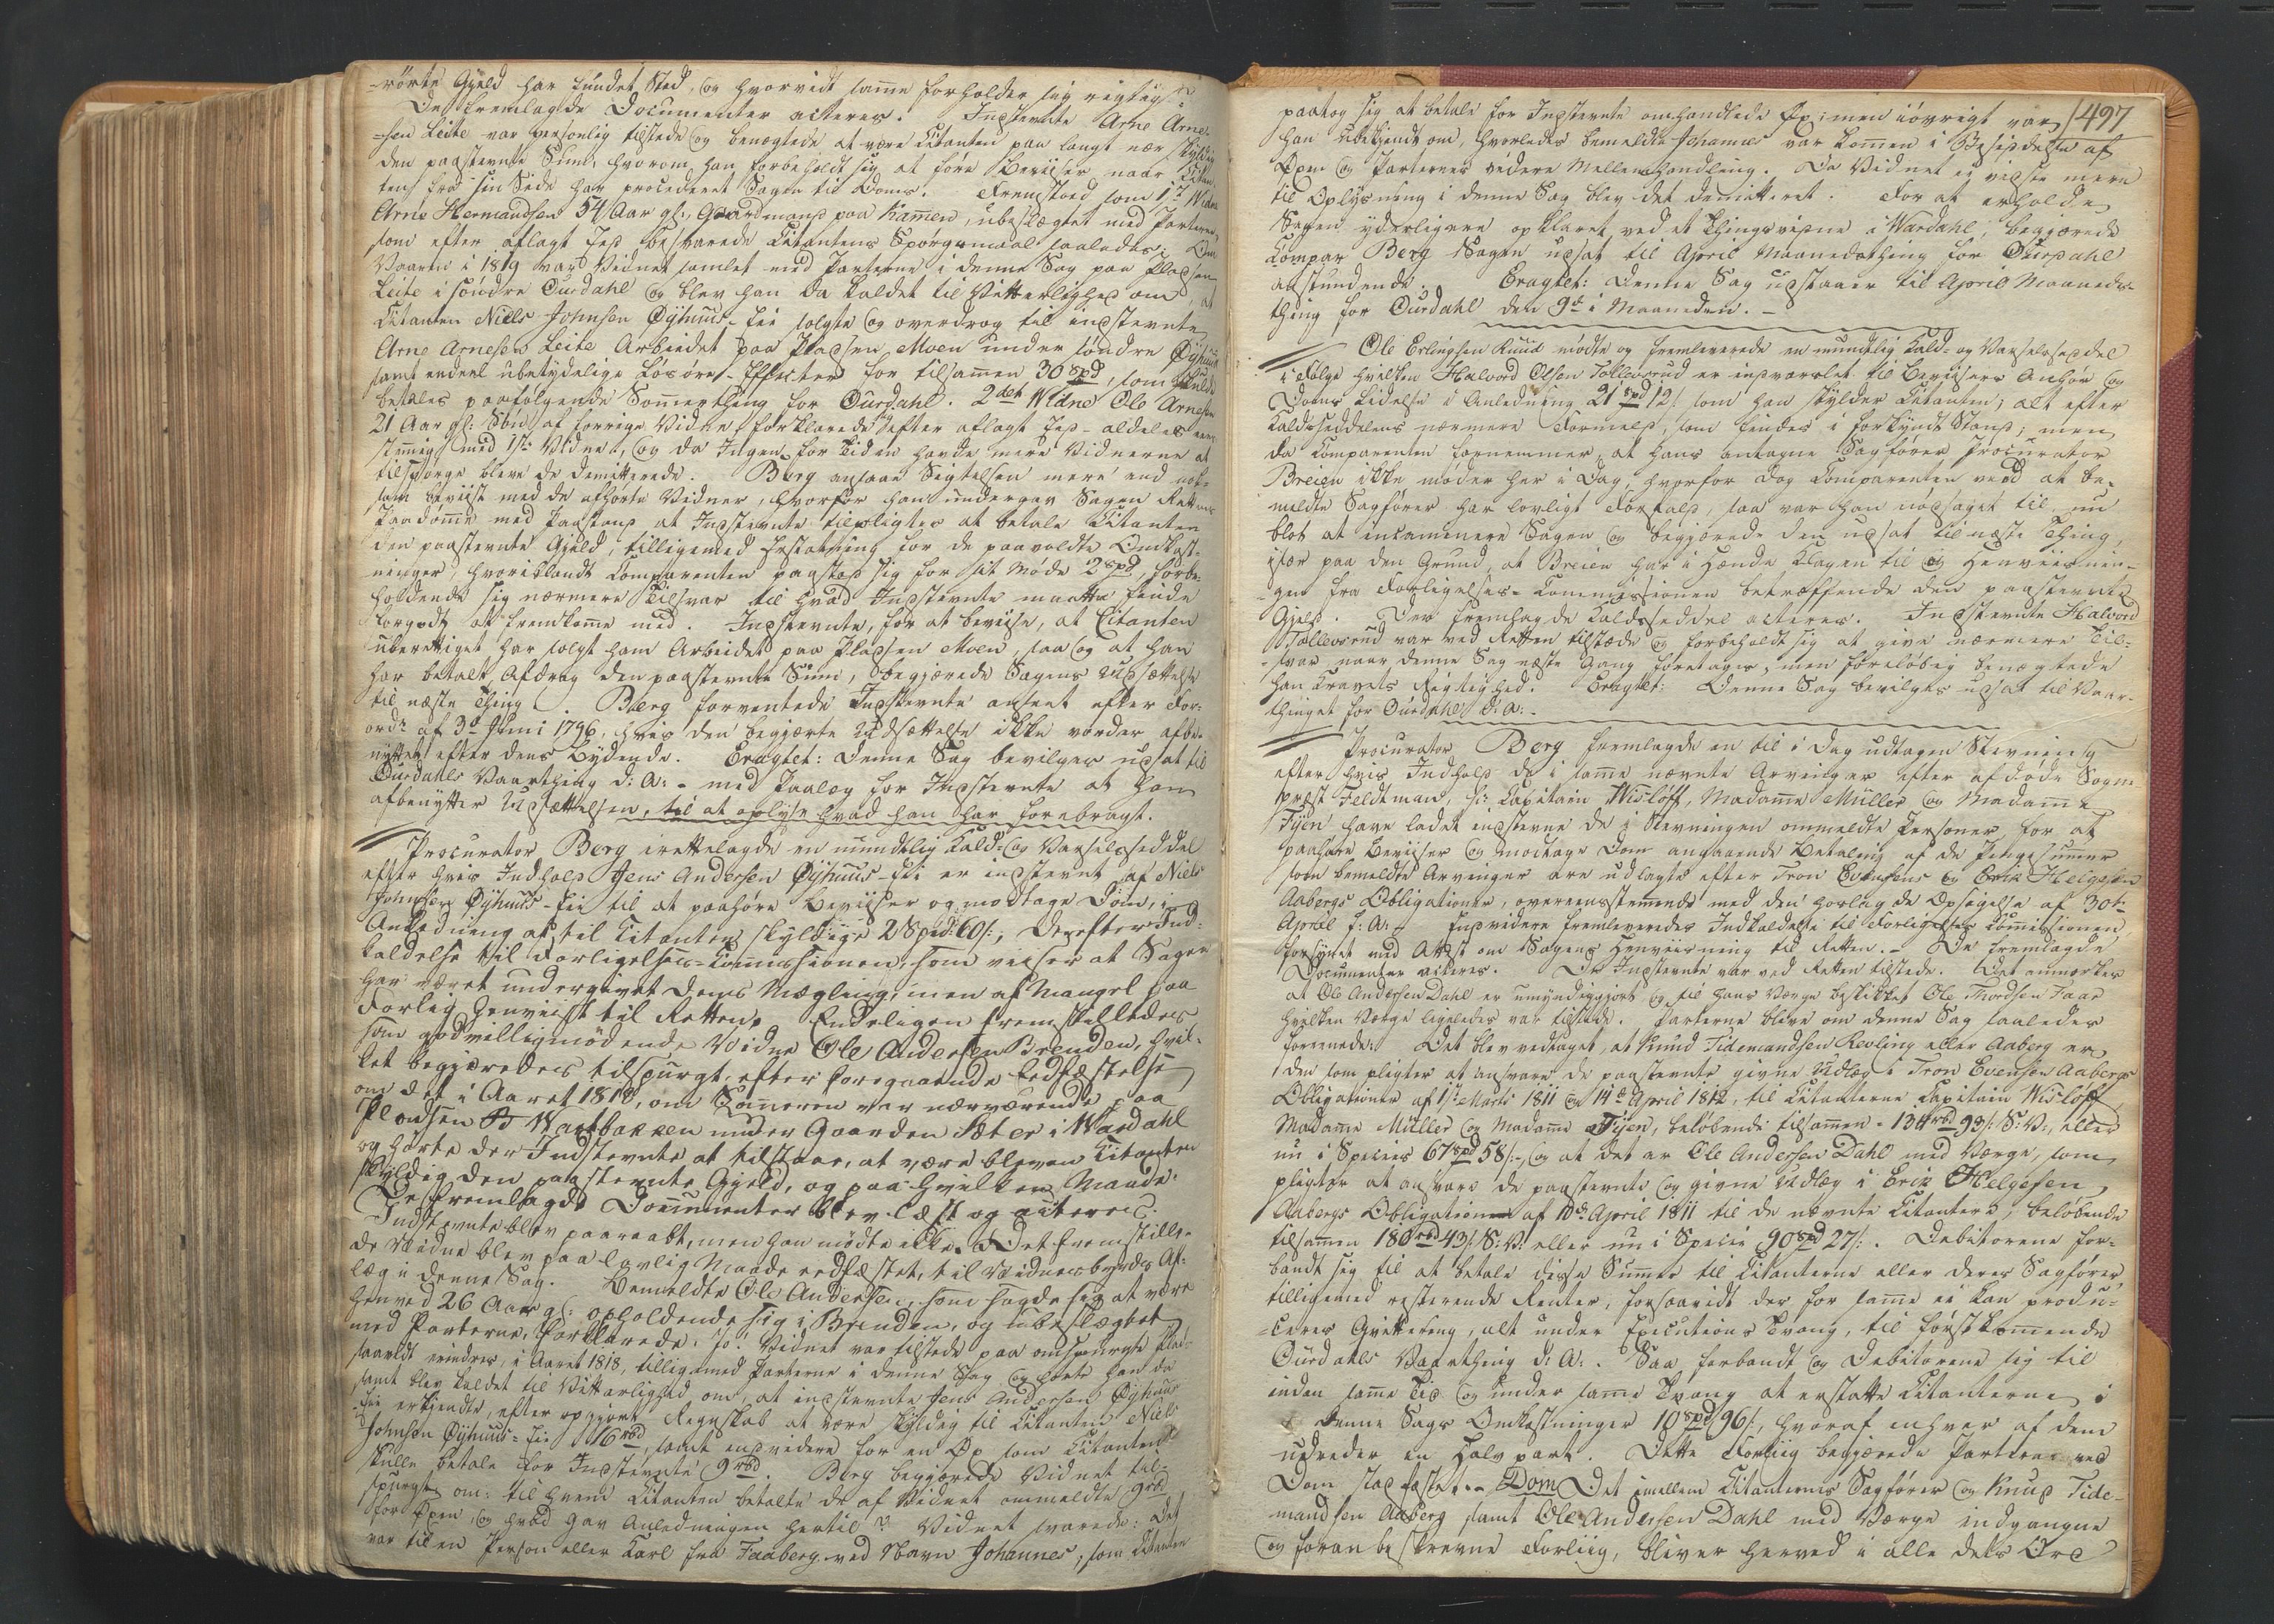 rörte Gjeld har fundet Sted, og hvorvidt samme forholder sig rigtigt.
De fremlagde Documenter acteres. Indstevnte Arne Arne-
sen Leite var personlig tilstede og benegtede at være Citanten paa langt nær skyldig
den paastevnte Sum, hvorom han forbeholdt sig at före Beviiser naar Citan-
ten fra sin Side har procederet Sagen til Doms. Fremstoed som 1ste Vidne
Arne Hermandsen 54 Aar gl:, Gaardmand paa Kammen, ubeslægtet med Parterne,
som efter aflagt Eed besvarede Citantens Spörgsmaal saaledes: Om
Vaaren i 1819 var Vidnet samlet med Parterne i denne Sag paa Pladsen
Leite i söndre Ourdahl og blev han da kaldet til Vitterlighed om, at
Citanten Niels Johnsen Öyhuus-Eie solgte og overdrog til indstevnte
Arne Arnesen Leite Arbeidet paa Pladsen Moen under söndre Öyhuus
samt endeel ubetydelige Lösöre-Effecter for tilsammen 30 spd, som skulde
betales paafölgende Sommerthing for Ourdahl. 2det Vidne Ole Arnesen
21 Aar gl: Sön af forrige Vidne forklarede efter aflagt Eed aldeles eens-
stemmig med 1ste Vidne, og da Ingen for Tiden havde mere Vidnerne at
tilspörge bleve de demitterede. Berg ansaae Sigtelsen mere end nok-
som beviist med de afhörte Vidner, hvorfor han undergav Sagen Rettens
Paadömme med Paastand at Indstevnte tilpligtes at betale Citanten
den paastevnte Gjeld, tilligemed Erstatning for de paavoldte Omkost-
ninger, hvoriblandt Comparenten paastod sig for sit Möde 2 spd, forbe-
holdende sig nærmere Tilsvar til hvad Indstevnte maatte finde
forgodt at fremkomme med. Indstevnte, for at beviise, at Citanten
uberettiget har solgt ham Arbeidet paa Pladsen Moen, saa og at han
har betalt Afdrag den paastevnte Sum, begjærede Sagens Udsættelse
til næste Thing. Berg forventede Indstevnte anseet efter For-
ordn: af 3d Juni 1796, hvis den begjærte Udsættelse ikke vorder afbe-
nyttet efter dens Lydende. Eragtet: Denne Sag bevilges udsat til
Ourdahls Vaarthing d: A: - med Paalæg for Indstevnte at han
afbenytter Udsættelsen, til at oplyse hvad han har forebragt.
Procurator Berg irettelagde en mundtlig Kald- og Varselsseddel
efter hvis Indhold Jens Andersen Öyhuus-Eie er indstevnt af Niels
Johnsen Öyhuus-Eie til at paahöre Beviiser og modtage Dom, i
Anledning af til Citanten skyldige 28 spd: 60/:; Derefter Ind-
kaldelse til Forligelses-Commissionen, som viiser at Sagen
har været undergivet dens Mægling, men af Mangel paa
Forlig henviist til Retten. Endeligen fremstilledes
som godvilligmödende Vidne Ole Andersen Brenden, hvil-
ket begjæredes tilspurgt, efter foregaaende Eedfæstelse
om det i Aaret 1818, om Sommeren var nærværende paa
Pladsen Wartbakken under Gaarden Sæter i Wardahl
og hörte der Indstevnte at tilstaae, at være bleven Citanten
skyldig den paastevnte Gjeld, og paa hvilken Maade.
De fremlagde Documenter blev læst og acteret.
Indstevnte blev paaraabt, men han mödte ikke. Det fremstille-
de Vidne blev paa lovlig Maade eedfæstet, til Vidnesbyrds Af-
læg i denne Sag. Bemeldte Ole Andersen, som sagde sig at være
henved 26 Aar gl: opholdende sig i Brenden, og ubeslægtet
med Parterne, forklarede: Jo! Vidnet var tilstede paa omspurgte Plads
saavidt erindres, i Aaret 1818, tilligemed Parterne i denne Sag og hörte han da
samt blev kaldet til Vitterlighed om, at indstevnte Jens Andersen Öyhuus
Eie erkjendte, efter opgjort Regnskab at være skyldig til Citanten Niels
Johnsen Öyhuus-Eie 16 rbd, samt endvidere for en Oxe som Citanten
skulle betale for Indstevnte 9 rbd. Berg begjærede Vidnet til-
spurgt om: til hvem Citanten betalte de af Vidnet ommeldte 9 rbd
for Oxen, og hvad gav Anledningen hertil? Vidnet svarede: Det
var til en Person eller Karl fra Faaberg ved Navn Johannes, som Citanten
497
paatog sig at betale for Indstevnte omhandlede Oxe; men iövrigt var
han ubekjendt om, hvorledes bemeldte Johannes var kommen i Besiddelse af
Oxen og Parternes videre Mellemhandling. Da Vidnet ei vidste mere
til Oplysning i denne Sag blev det demitteret. For at erholde
Sagen yderligere opklaret ved et Thingsvidne i Wardahl, begjærede
Compar Berg Sagen udsat til April Maanedsthing for Ourdahl
anstundende. Eragtet: Denne Sag udstaaer til April Maaneds-
thing for Ourdahl den 9de i Maaneden. -
Ole Erlingsen Ruud mödte og fremleverede en mundtlig Kald- og Varselsseddel
i Fölge hvilken Halvord Olsen Tollevsrud er indvarslet til Beviisers Anhör og
Doms Lidelse i Anledning 21 spd 12/. som han skylder Citanten; alt efter
Kaldsseddelens nærmere Formeld, som findes i forkyndt Stand; men
da Comparenten fornemmer, at hans antagne Sagförer Procurator
Breien ikke möder her i Dag, hvorfor dog Comparenten veed at be-
meldte Sagförer har lovligt Forfald, saa var han nödsaget til nu
blot at incaminere Sagen og begjærede den udsat til næste Thing,
især paa den Grund, at Breien har i Hænde Klagen til og Henviisnin-
gen fra Forligelses-Commissionen betræffende den paastevnte
Gjeld. Den fremlagde Kaldsseddel acteres. Indstevnte Halvord
Tollevsrud var ved Retten tilstæde og forbeholdt sig at give nærmere Til-
svar naar denne Sag næste Gang foretages, men forelöbig benegtede
han Kravets Rigtighed. Eragtet: Denne Sag bevilges udsat til Vaar-
thinget for Ourdahl d: A: -
Procurator Berg fremlagde en til i Dag udtagen Stevning
efter hvis Indhold de i samme nævnte Arvinger efter afdöde Sogne-
præst Feldtman, Hr: Capitain Wislöff, Madame Müller og Madame
Tyen have ladet indstevne de i Stevningen ommeldte Personer, for at
paahöre Beviiser og modtage Dom angaaende Betaling af de Pengesummer
som bemeldte Arvinger ere udlagte efter Tron Evensens og Erik Helgesen
Aabergs Obligationer, overeensstemmende med den forlagde Opsigelse af 30te
April f: A: - Endvidere fremleveredes Indkaldelse til Forligelses Commissionen,
forsynet med Attest om Sagens Henviisning til Retten. - De fremlagde
Documenter acteres. De Indstevnte var ved Retten tilstede. Det anmærkes
at Ole Andersen Dahl er umyndiggjort og til hans Værge beskikket Ole Thordsen Faar
hvilken Værge ligeledes var tilstede. Parterne bleve om denne Sag saaledes
forenede: Det blev vedtaget, at Knud Tidemandsen Kevling eller Aaberg er
den som pligter at ansvare de paastevnte givne Udlæg i Tron Evensen Aabergs
Obligationer af 1ste Marts 1811 og 14de April 1812, til Citanterne Capitain Wislöff,
Madame Müller og Madame Tyen, belöbende tilsammen - 134 rbd 93/: S: V:, eller
nu i Species 67 spd 58/:-, og at det er Ole Andersen Dahl med Værge, som
pligter at ansvare de paastevnte og givne Udlæg i Erik Helgesen
Aabergs Obligation af 10de April 1811 til de nævnte Citantere, belöbende
tilsammen 180 rbd 43/: S: V: eller nu i Specie 90 spd 27/:. Debitorerne for-
bandt sig til at betale disse Summer til Citanterne eller deres Sagförer,
tilligemed resterende Renter, forsaavidt der for samme ei kan produ-
ceres Qvittering, alt under Executions Tvang, til förstkommende
Ourdahls Vaarthing d: A:. Saa forbandt og Debitorerne sig til
inden samme Tid og under samme Tvang at erstatte Citanterne i
denne Sags Omkostninger 10 spd 96/:, hvoraf enhver af dem
udreder en Halvpart. Dette Forliig begjærede Parterne ved
Dom stadfæstet. - Dom Det imellem Citanternes Sagförer og Knud Tide-
mandsen Aaberg samt Ole Andersen Dahl med Værge indgangne
og foranbeskrevne Forliig, bliver herved i alle dets Ord